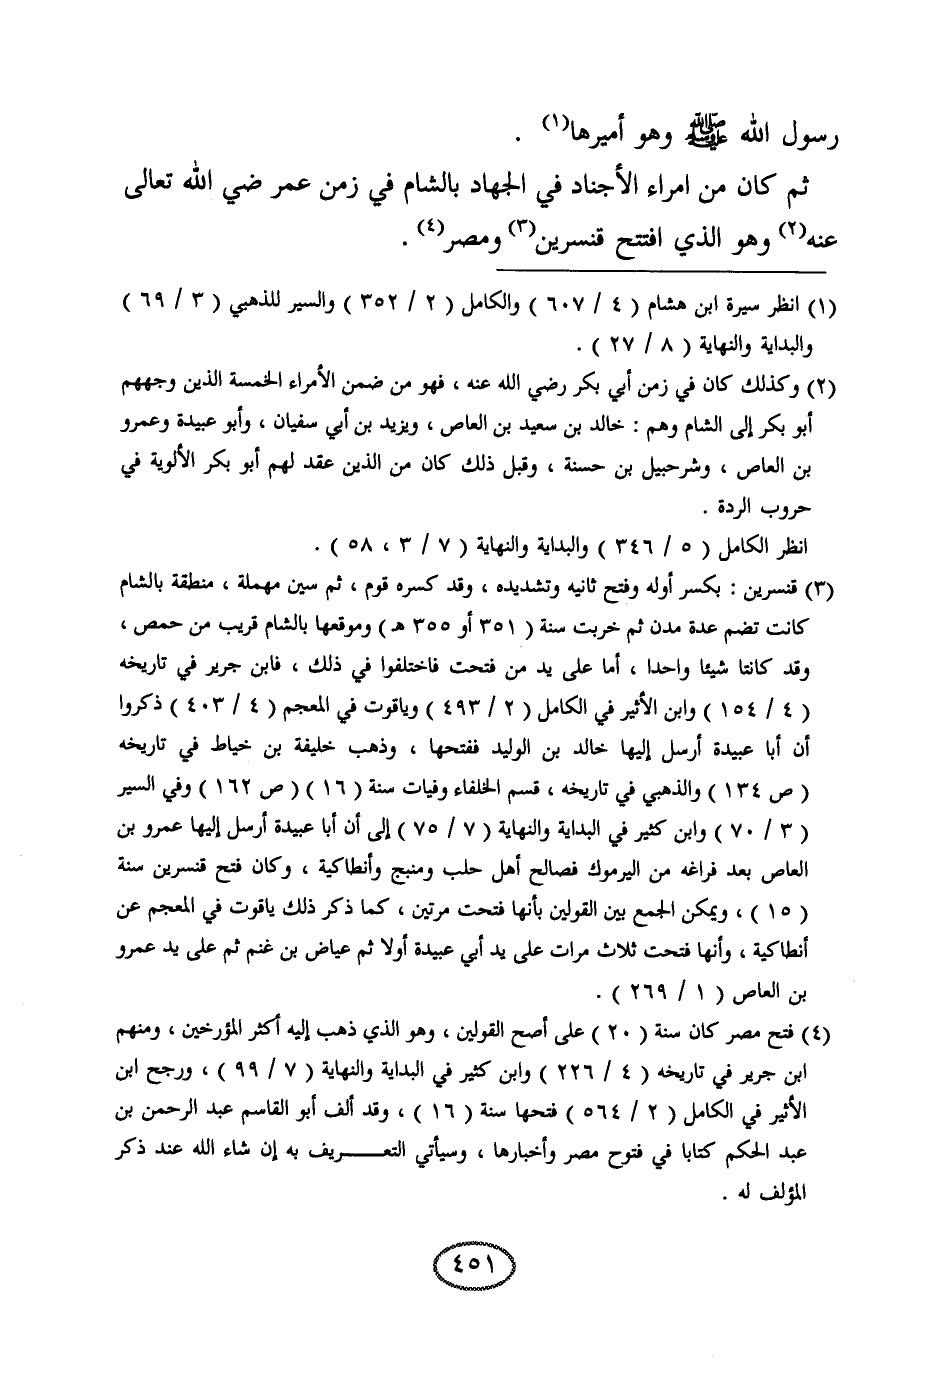 رسول الله ﷺ وهو أميرها(١) .
ثم كان من امراء الأجناد في الجهاد بالشام في زمن عمر ضي الله تعالى
عنه(٢) وهو الذي افتتح قنسرين(٣) ومصر(٤) .
(١) انظر سيرة ابن هشام ( ٤ / ٦٠٧ ) والكامل ( ٢ / ٣٥٢ ) والسير للذهبي ( ٣ / ٦٩ )
والبداية والنهاية ( ٨ / ٢٧ ) .
(٢) وكذلك كان في زمن أبي بكر رضي الله عنه ، فهو من ضمن الأمراء الخمسة الذين وجههم
أبو بكر إلى الشام وهم : خالد بن سعيد بن العاص ، ويزيد بن أبي سفيان ، وأبو عبيدة وعمرو
بن العاص ، وشرحبيل بن حسنة ، وقبل ذلك كان من الذين عقد لهم أبو بكر الألوية في
حروب الردة .
انظر الكامل ( ٥ / ٣٤٦ ) والبداية والنهاية ( ٧ / ٣ ، ٥٨ ) .
(٣) قنسرين : بكسر أوله وفتح ثانيه وتشديده ، وقد كسره قوم ، ثم سين مهملة ، منطقة بالشام
كانت تضم عدة مدن ثم خربت سنة ( ٣٥١ أو ٣٥٥ هـ ) وموقعها بالشام قريب من حمص ،
وقد كانتا شيئا واحدا ، أما على يد من فتحت فاختلفوا في ذلك ، فابن جرير في تاريخه
( ٤ / ١٥٤ ) وابن الأثير في الكامل ( ٢ / ٤٩٣ ) وياقوت في المعجم ( ٤ / ٤٠٣ ) ذكروا
أن أبا عبيدة أرسل إليها خالد بن الوليد ففتحها ، وذهب خليفة بن خياط في تاريخه
( ص ١٣٤ ) والذهبي في تاريخه ، قسم الخلفاء وفيات سنة ( ١٦ ) ( ص ١٦٢ ) وفي السير
( ٣ / ٧٠ ) وابن كثير في البداية والنهاية ( ٧ / ٧٥ ) إلى أن أبا عبيدة أرسل إليها عمرو بن
العاص بعد فراغه من اليرموك فصالح أهل حلب ومنبج وأنطاكية ، وكان فتح قنسرين سنة
( ١٥ ) ، ويمكن الجمع بين القولين بأنها فتحت مرتين ، كما ذكر ذلك ياقوت في المعجم عن
أنطاكية ، وأنها فتحت ثلاث مرات على يد أبي عبيدة أولا ثم عياض بن غنم ثم على يد عمرو
بن العاص ( ١ / ٢٦٩ ) .
(٤) فتح مصر كان سنة ( ٢٠ ) على أصح القولين ، وهو الذي ذهب إليه أكثر المؤرخين ، ومنهم
ابن جرير في تاريخه ( ٤ / ٢٢٦ ) وابن كثير في البداية والنهاية ( ٧ / ٩٩ ) ، ورجح ابن
الأثير في الكامل ( ٢ / ٥٦٤ ) فتحها سنة ( ١٦ ) ، وقد ألف أبو القاسم عبد الرحمن بن
عبد الحكم كتابا في فتوح مصر وأخبارها ، وسيأتي التعـــــريف به إن شاء الله عند ذكر
المؤلف له .
٤٥١